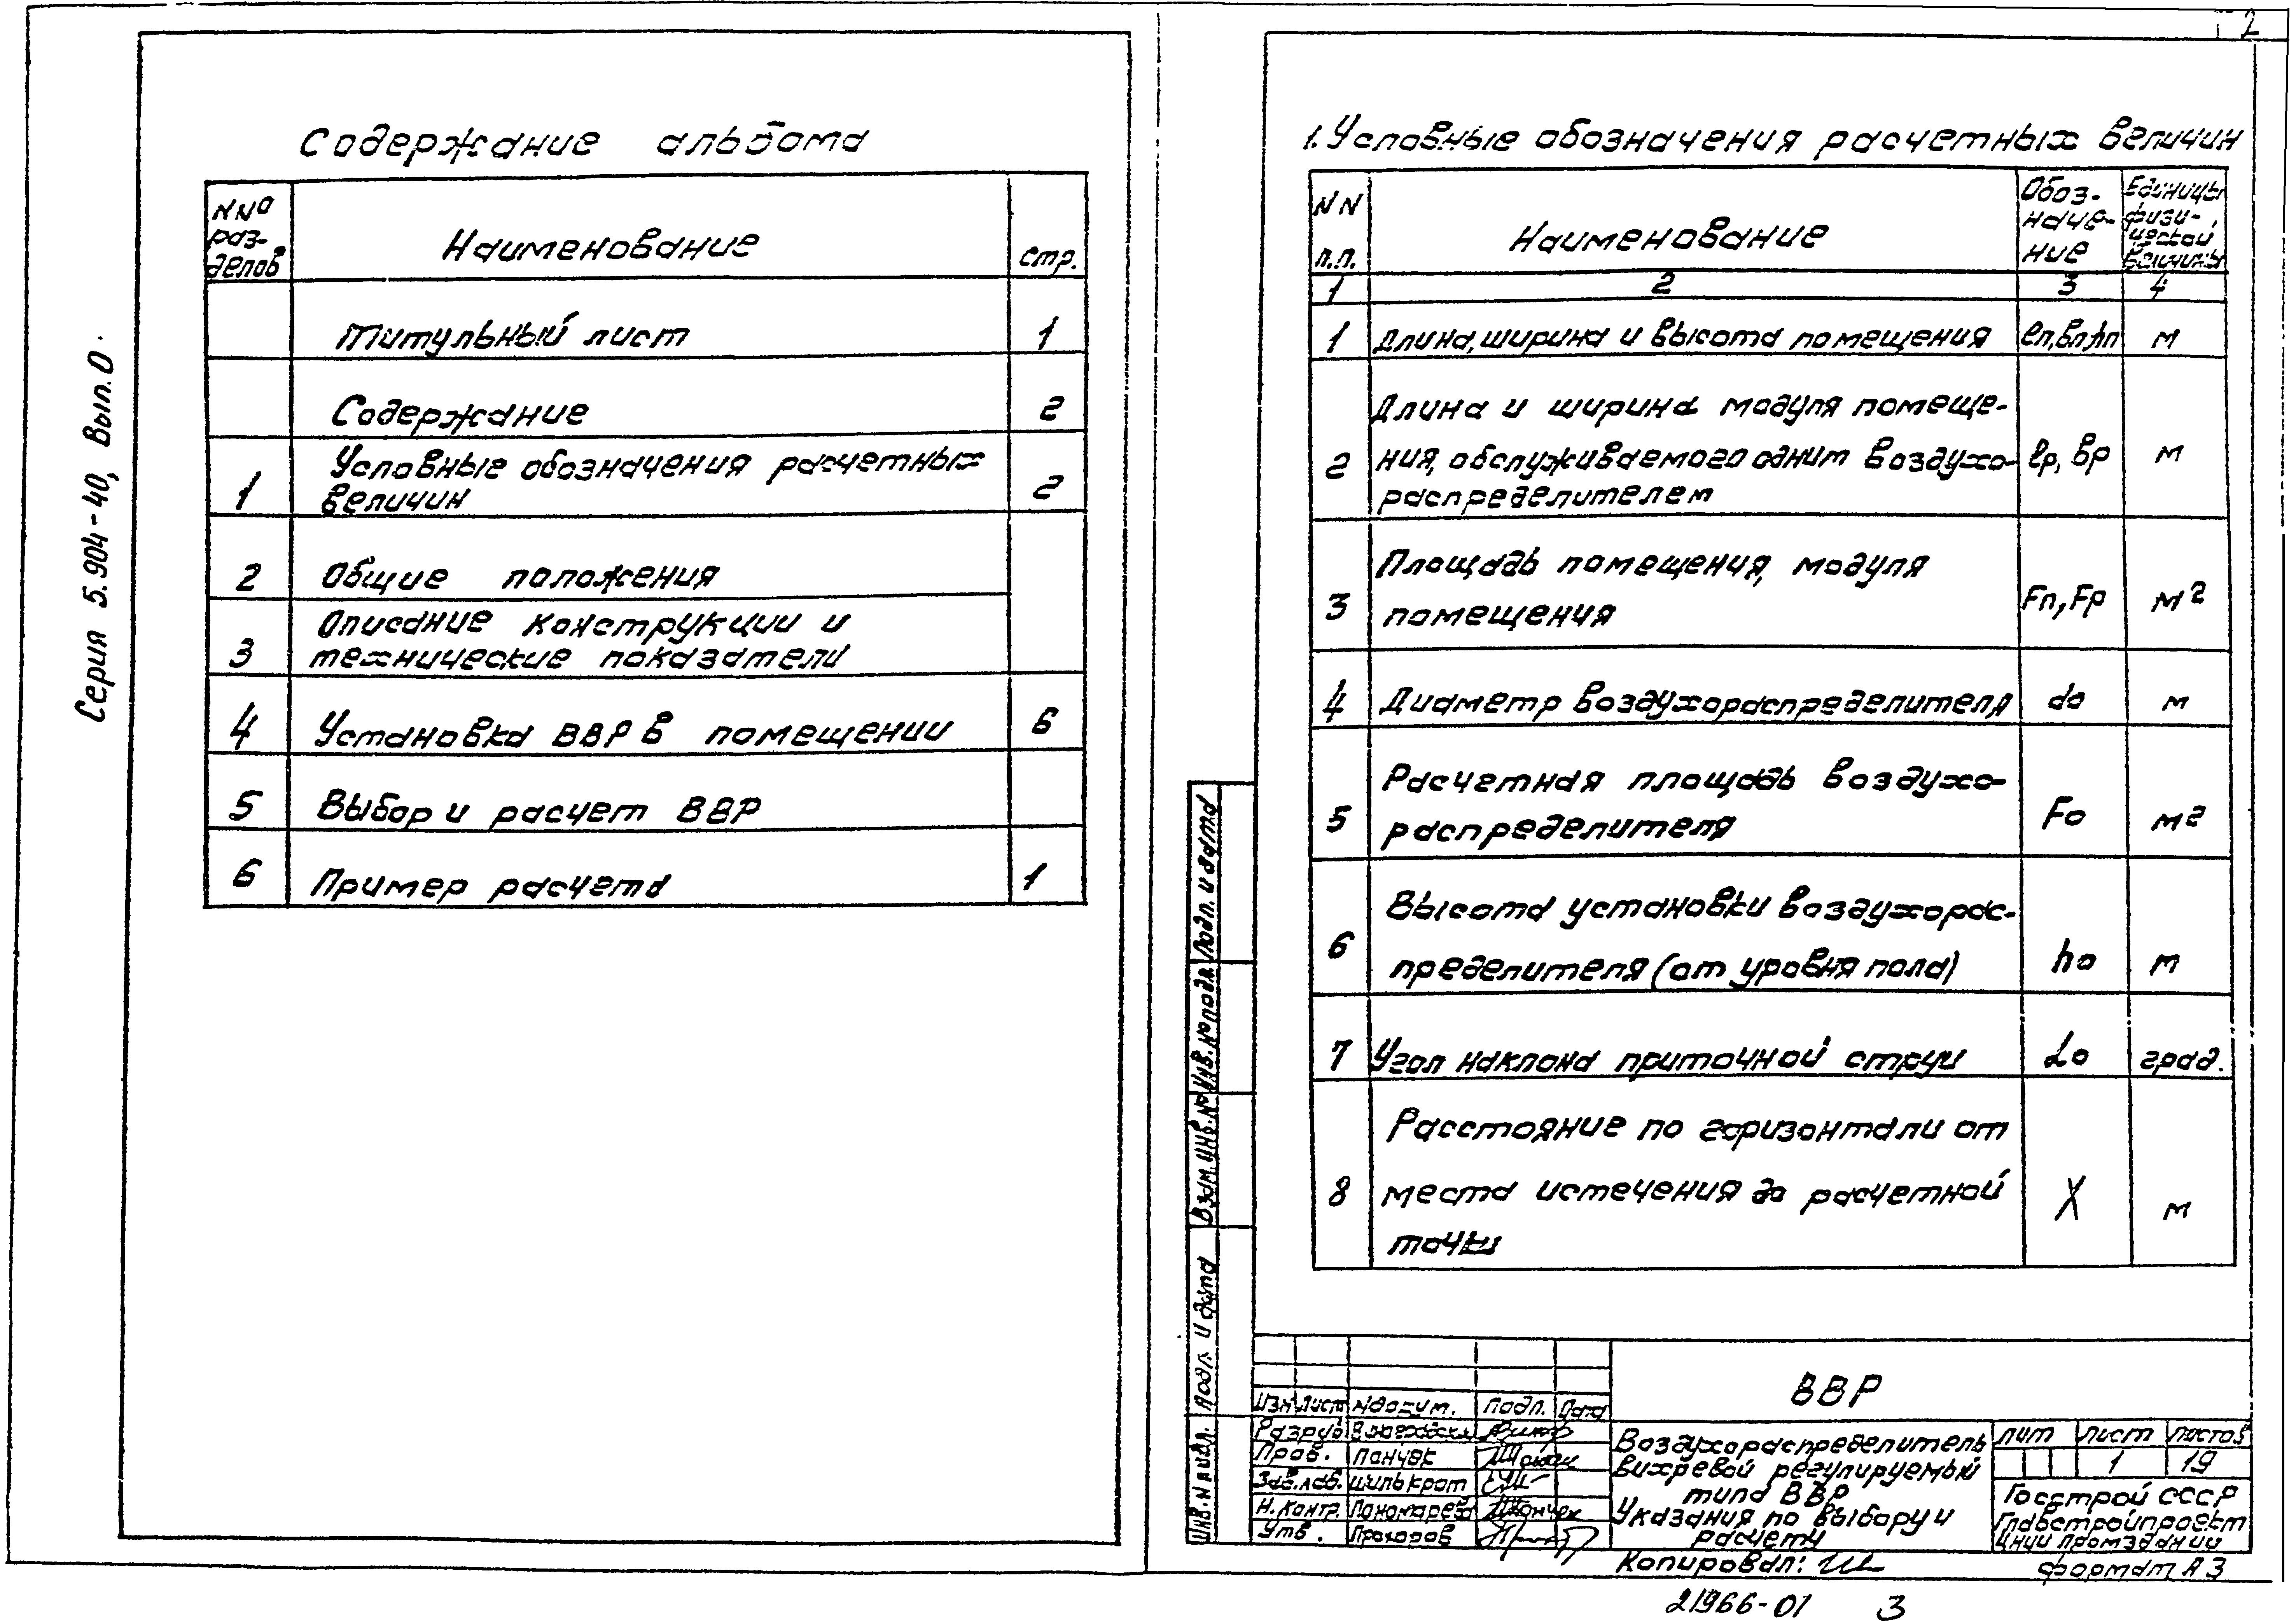 2
Серия 5.904-40, Вып. 0
Содержание альбома
NNо раз-делов
Наименование
стр.
Титульный лист 1
Содержание 2
Условные обозначения расчетных
1 величин 2
2 Общие положения
Описание конструкции и
3 технические показатели
4 Установка ВВР в помещении 6
5 Выбор и расчет ВВР
6 Пример расчета 1
1. Условные обозначения расчетных величин
NN п.п.
Наименование
Обоз-наче-ние
Единицы физи-ческой величины
1 2 3 4
1 Длина, ширина и высота помещения lп, вп, hп м
Длина и ширина модуля помеще-
2 ния, обслуживаемого одним воздухо- lр, вр м
распределителем
Площадь помещения, модуля
3 помещения Fп, Fр м2
4 Диаметр воздухораспределителя do м
Расчетная площадь воздухо-
5 распределителя Fo м2
Высота установки воздухорас-
6 пределителя (от уровня пола) ho м
7 Угол наклона приточной струи αo град.
Расстояние по горизонтали от
8 места истечения до расчетной X м
точки
Подп. и дата
Инв. № подл.
Взам. инв. №
Подп. и дата
Инв. N подл.
Изм Лист N докум. Подп. Дата
Разраб
Пров. Панчек
Зав. лаб. Шилькрот
Н. Контр. Пономарева
Утв. Прохоров
ВВР
Воздухораспределитель
вихревой регулируемый
типа ВВР
Указания по выбору и
расчету
лит лист листов
1 19
Госстрой СССР
Главстройпроект
ЦНИИ промзданий
Копировал:
формат А3
21966-01 3